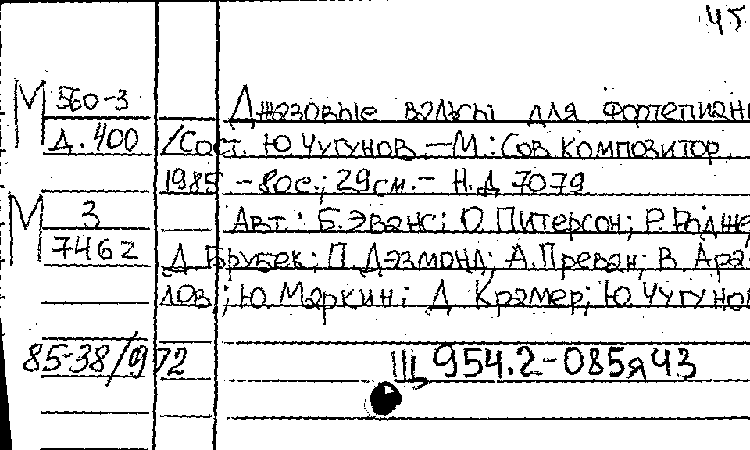 45
М 560-3 Джазовые вальсы для фортепиан
Д.400 /Сост. Ю Чугунов.—М.:Сов композитор,
1985 -80с.; 29см.- Н.Д 7079
М 3 Авт.: Б.Эванс; О. Питерсон; Р. Роджe
7462 Д. Брубек; П. Дэзмонд; А.Превен; В. Ара-
лов; Ю. Маркин; Д Крамер; Ю. Чугунов
85-38/972 Щ 954.2-085я43